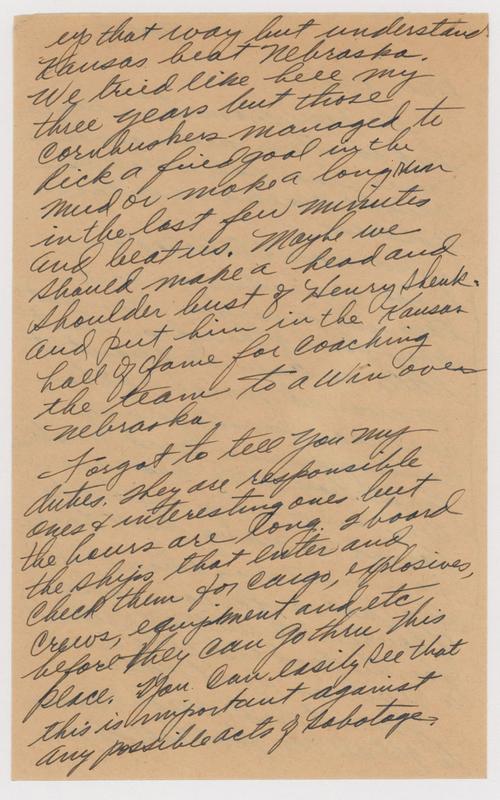 up that way but understand
Kansas beat Nebraska.
We tried like hell my
three years but those
cornhuskers managed to
kick a field goal in the
mud or make a long run
in the last few minutes
and beat us. Maybe we
should make a head and
shoulder bust of Henry Shenk.
and put him in the Kansas
hall of fame for coaching
the team to a win over
Nebraska.
Forgot to tell you my
duties. They are responsible
ones & interesting ones but
the hours are long. I board
the ships, that enter and
check them for cargo, explosives,
crews, equipment and, etc,
before they can go thru this
place. You can easily see that
this is important against
any possible acts of sabotage.